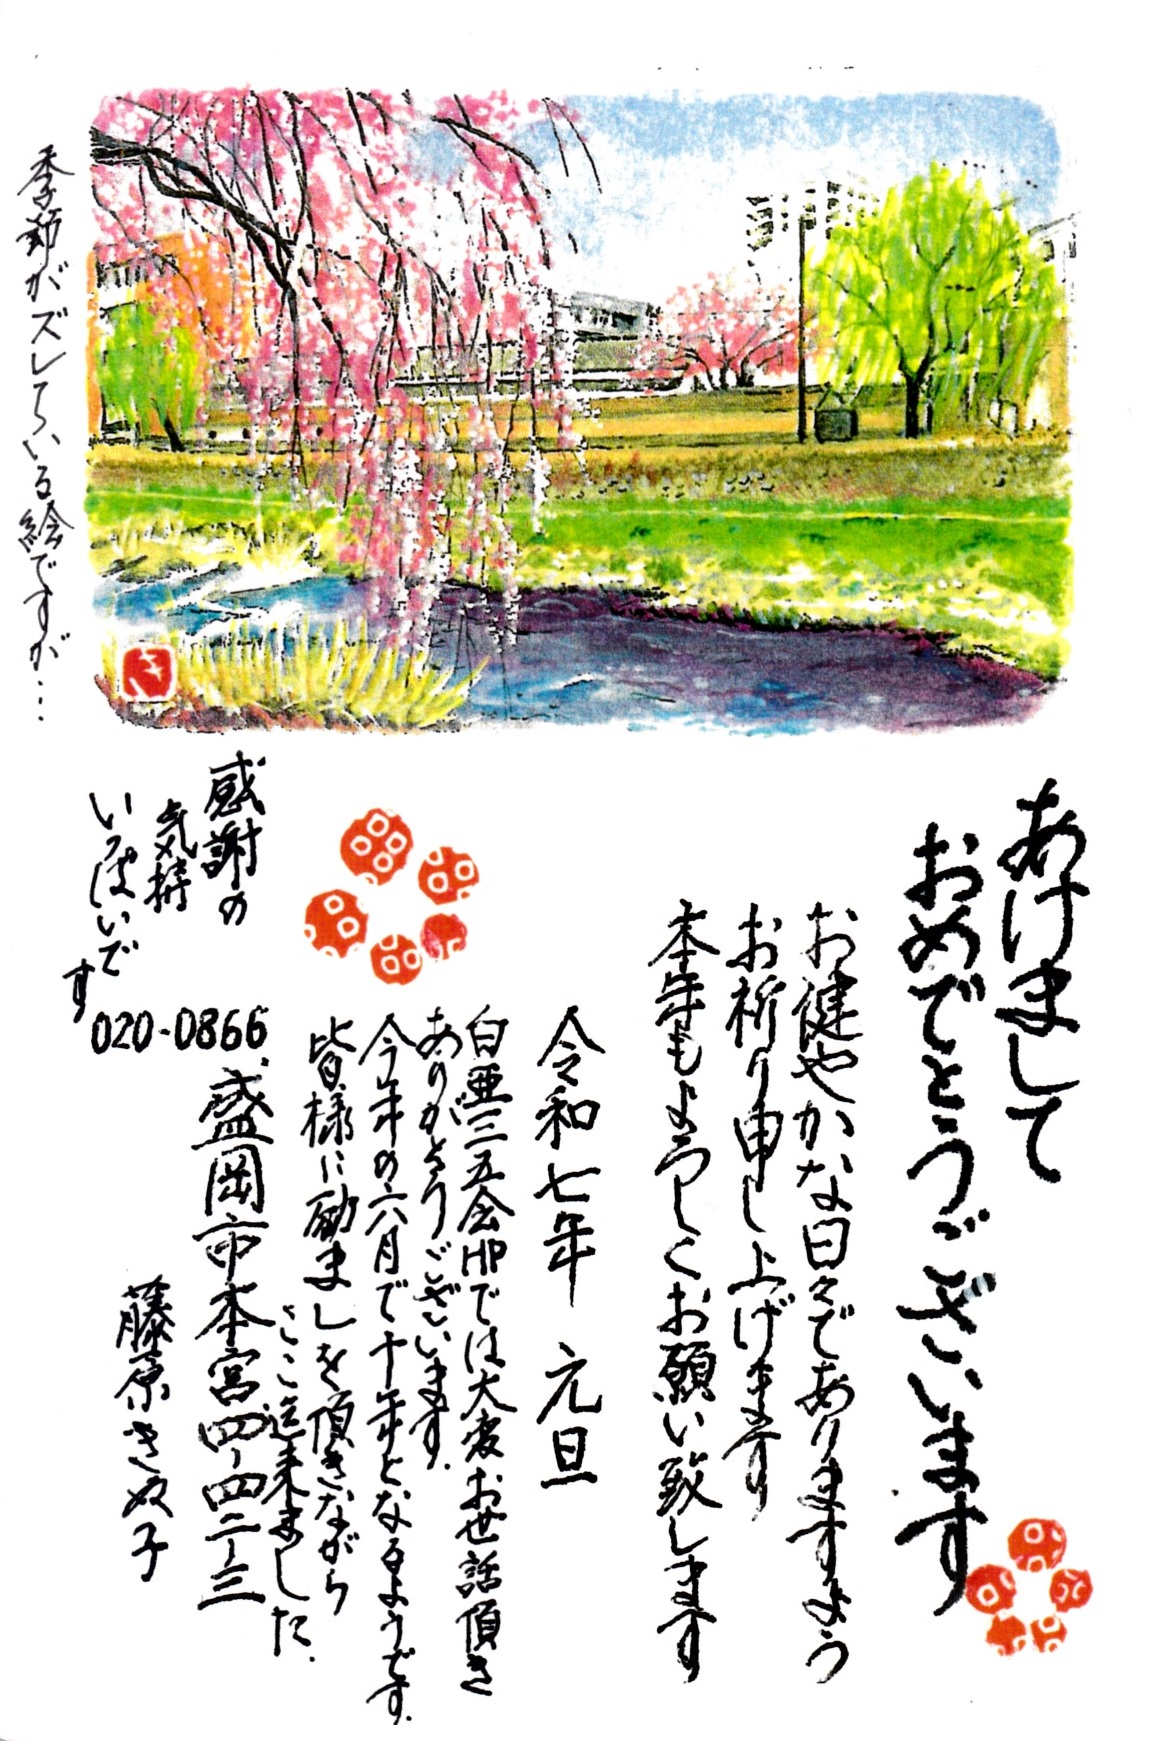 あけまして
おめでとうございます
お健やかな日々でありますよう
お祈り申し上げます
本年もよろしくお願い致します
令和七年 元旦
白亜三五会HPでは大変お世話頂き
ありがとうございます。
今年の六月で十年となるようです。
皆様に励ましを頂きながら
ここ迄来ました。
020-0866
盛岡市本宮四-四二-三
藤原きぬ子
感謝の
気持
いっぱいで
す
季節がズレている絵ですが…
き